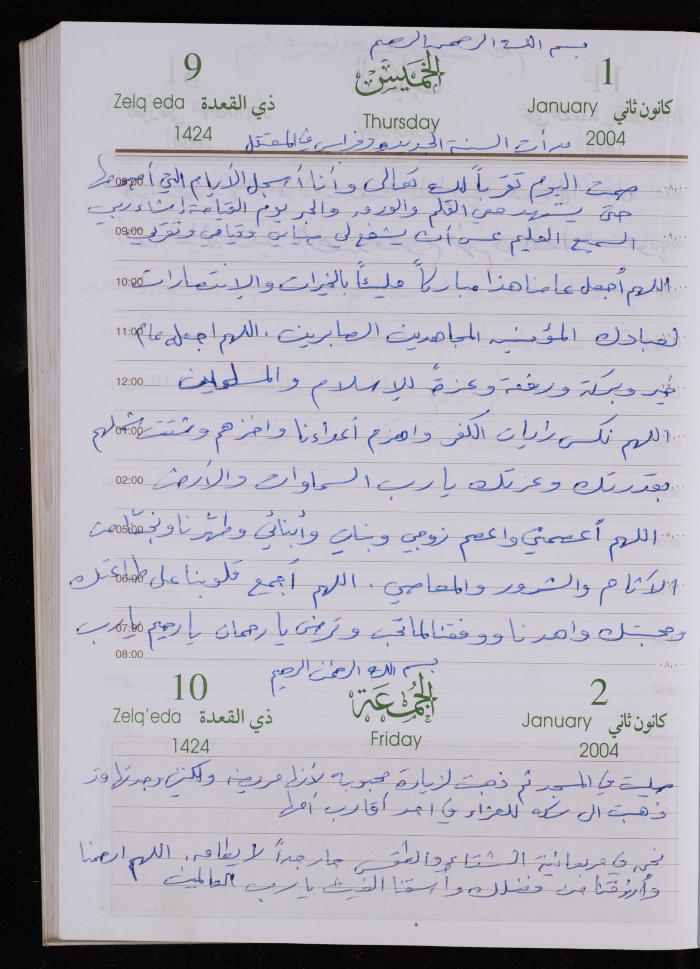 بسم الله الرحمن الرحيم
9 الخميس 1
Zelq'eda ذي القعدة Thursday January كانون ثاني
1424 2004
بدأت السنة الجديدة وفراس في المعتقل
08:00 صمت اليوم تقرباً لله تعالى وأنا أسجل الأيام التي
حتى يشهد معي القلم والورقة والحبر يوم القيامة إن شاء ربي
09:00 السميع العليم عسى أن يشفع لي صيامي وقيامي وتقربي
10:00 اللهم أجعل عامنا هذا مباركاً مليئاً بالخيرات والانتصارات
11:00 لعبادك المؤمنين المجاهدين الصابرين . اللهم اجعله عام
12:00 خير وبركة ورفعة وعزة للإسلام والمسلمين
01:00 اللهم نكس رايات الكفر واهزم أعداءنا واخزهم وشتت شملهم
02:00 بقدرتك وعزتك يا رب السماوات والأرض
05:00 اللهم أعصمني واعصم زوجي وبناتي وأبنائي وطهرنا ونجنا من
06:00 الآثام والشرور والمعاصي . اللهم أجمع قلوبنا على طاعتك
07:00 ومحبتك واهدنا ووفقنا لما تحب وترضى يا رحمان يا رحيم يا رب
08:00
بسم الله الرحمن الرحيم
10 الجمعة 2
Zelq'eda ذي القعدة Friday January كانون ثاني
1424 2004
صليت في المسجد ثم ذهبت لزيارة محبوبة لأنها مريضة ولكني وجدتها قد
ذهبت الى للعزاء في احد أقارب أمها
نحن في مربعانية الشتاء والطقس حار جداً لا يطاق . اللهم ارحمنا
وأرزقنا من فضلك وأسقنا الغيث يا رب العالمين